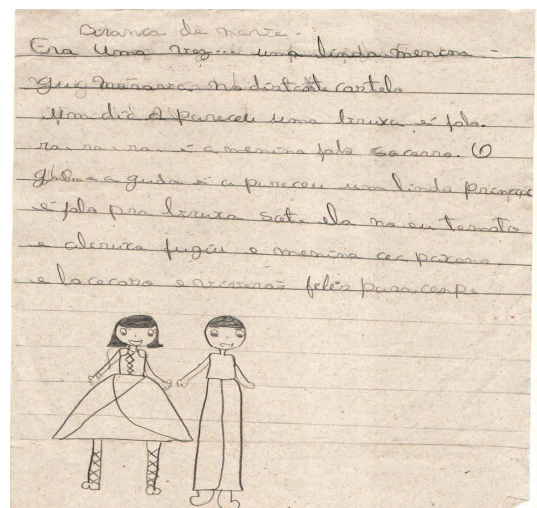 branca de neve.
Era uma vez... uma linda menina
que morava no distante castelo
um dia A pareceu uma bruxa é fala.
ra-ra-ra é a menina fala socorro. O
é a pareceu um lindo principe
é fala pra bruxa sote ela
a bruxa fugiu e menina
e viveram felis para cenpe